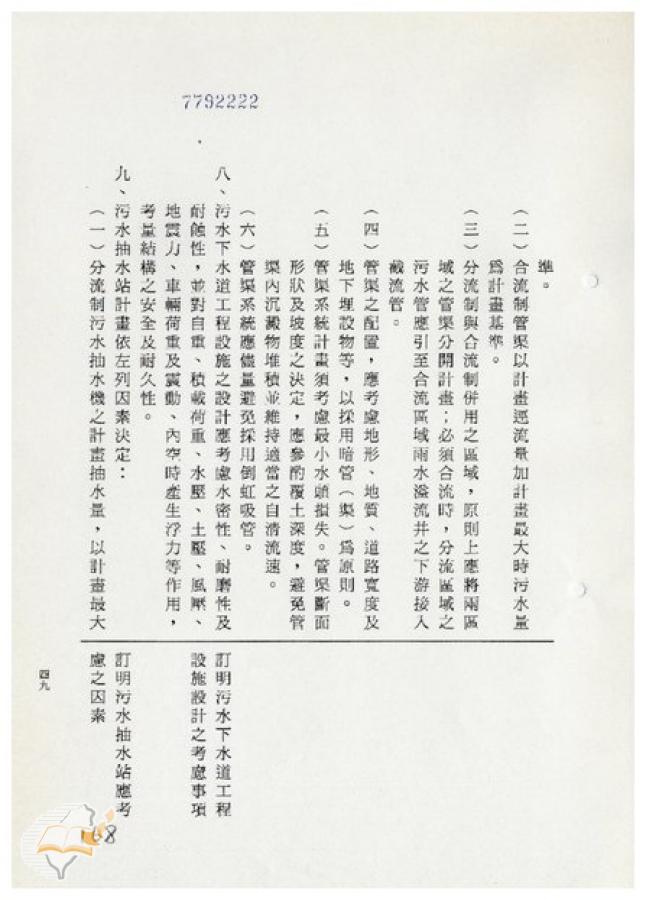 7792222
準。
(二)合流制管渠以計畫逕流量加計畫最大時污水量
爲計畫基準。
(三)分流制與合流制併用之區域，原則上應將兩區
域之管渠分開計畫；必須合流時，分流區域之
污水管應引至合流區域雨水溢流井之下游接入
截流管。
(四)管渠之配置，應考慮地形、地質、道路寬度及
地下埋設物等，以採用暗管(渠)爲原則。
(五)管渠系統計畫須考慮最小水頭損失。管渠斷面
形狀及坡度之決定，應參酌覆土深度，避免管
渠內沉澱物堆積並維持適當之自清流速。
(六)管渠系統應儘量避免採用倒虹吸管。
八、污水下水道工程設施之設計應考慮水密性、耐磨性及
耐蝕性，並對自重、積載荷重、水壓、土壓、風壓、
地震力、車輛荷重及震動、內空時產生浮力等作用，
考量結構之安全及耐久性。
九、污水抽水站計畫依左列因素決定：
(一)分流制污水抽水機之計畫抽水量，以計畫最大
訂明污水下水道工程
設施設計之考慮事項
訂明污水抽水站應考
慮之因素
四九
168